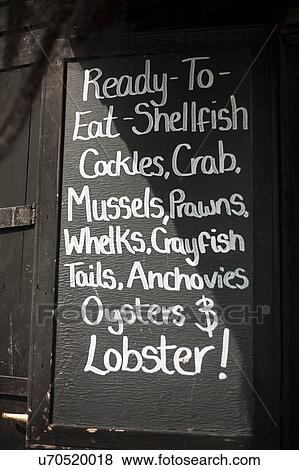 Ready-To-
Eat-Shellfish
Cockles, Crab.
Mussels, Prawns.
Whelks. Crayfish
Tails, Anchovies
Oysters &
Lobster!
Fotosearch
u70520018 www.fotosearch.com